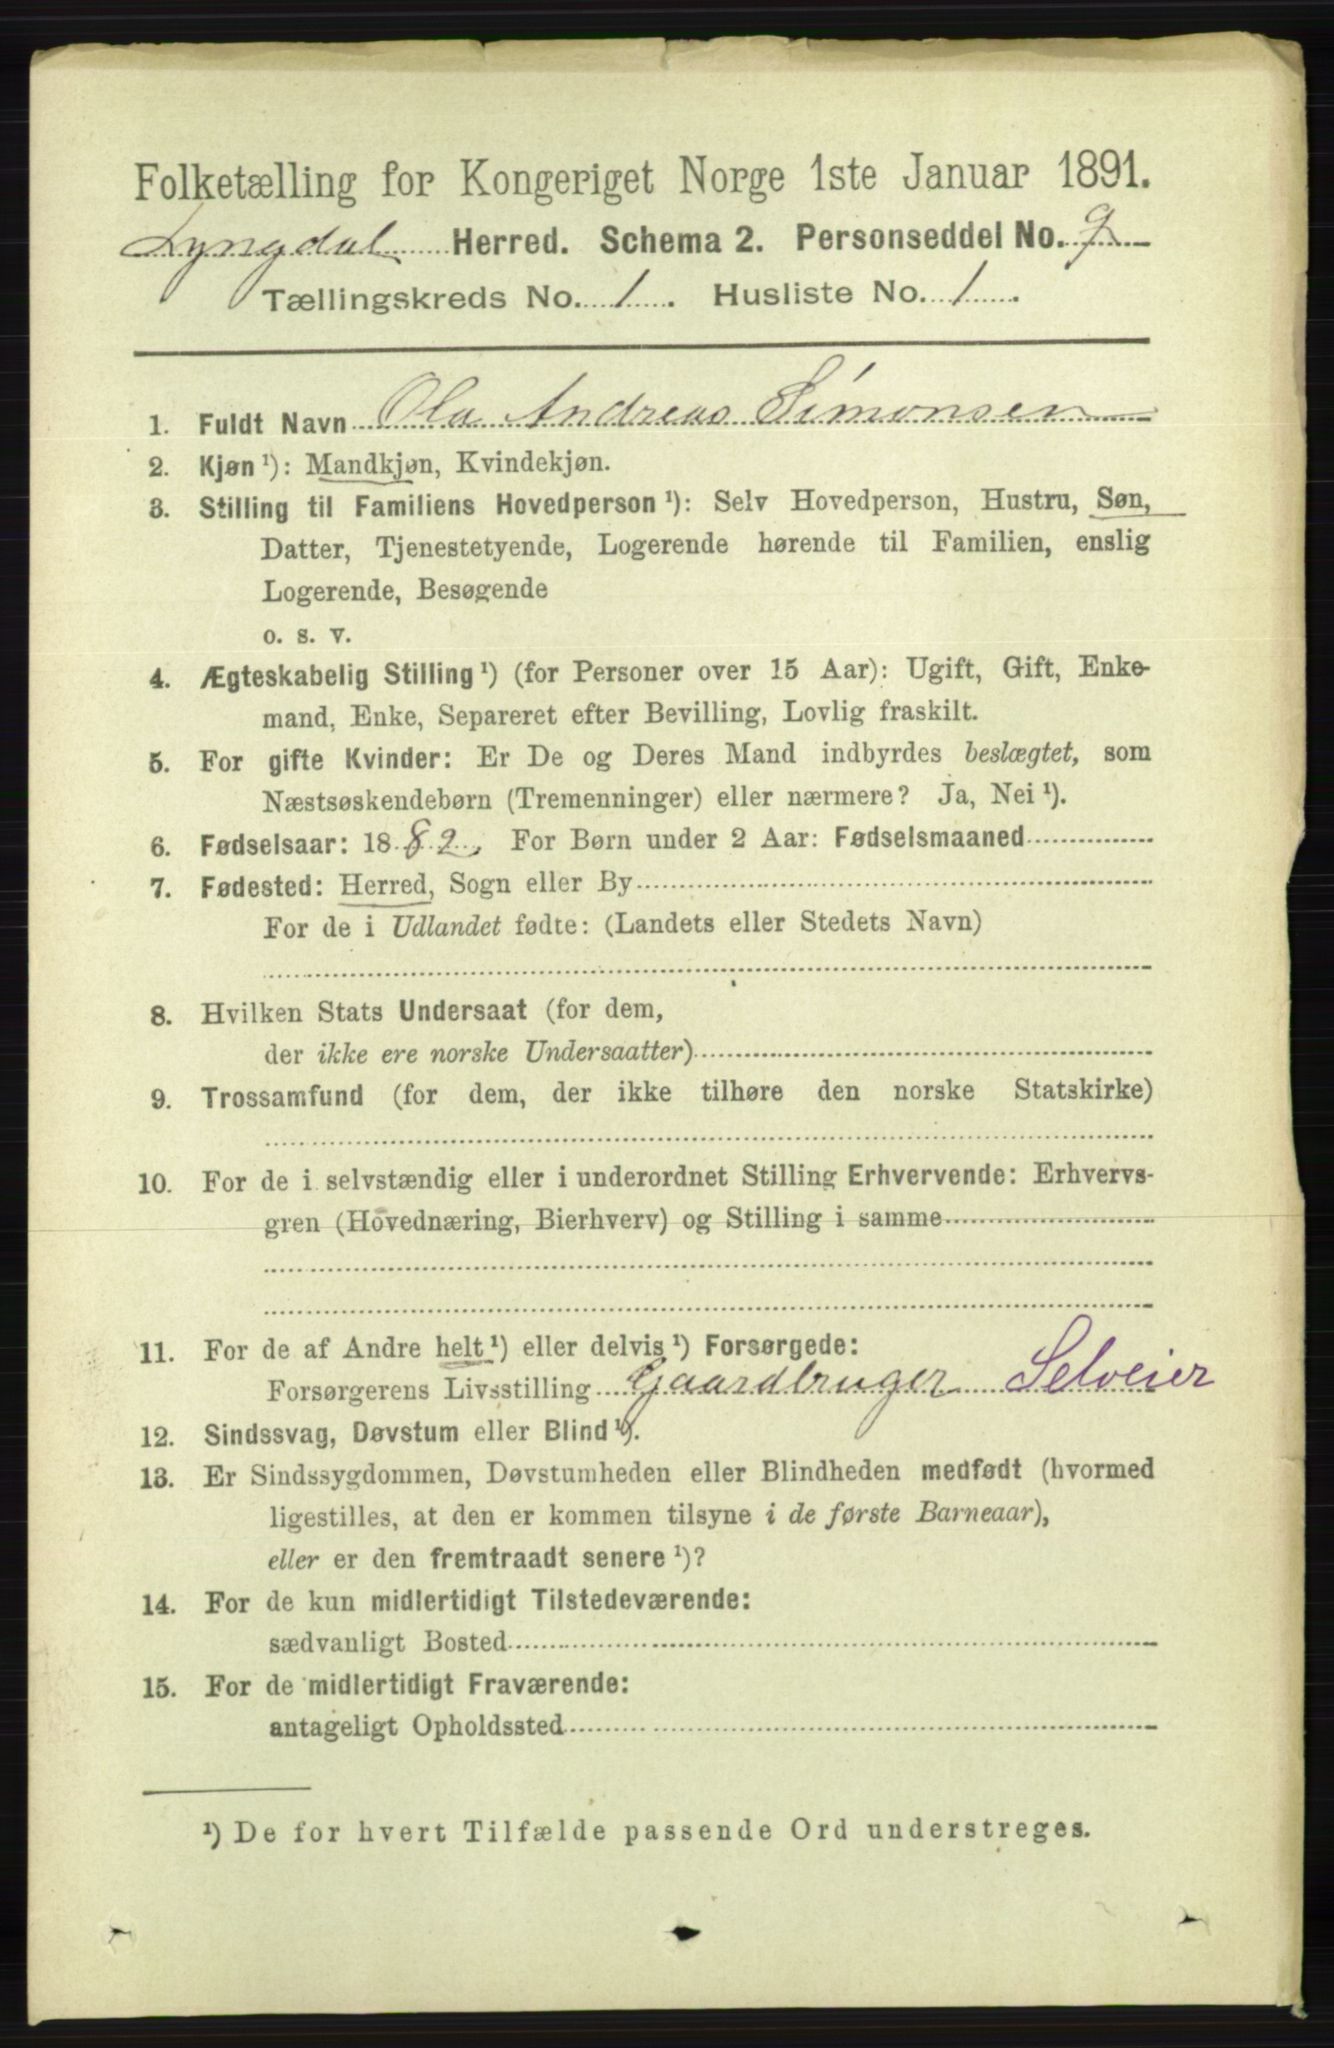 Folketælling for Kongeriget Norge 1ste Januar 1891.
Lyngdal Herred. Schema 2. Personseddel No. 9
Tællingskreds No. 1. Husliste No. 1.
1. Fuldt Navn Ola Andreas Simonsen
2. Kjøn ¹): Mandkjøn, Kvindekjøn.
3. Stilling til Familiens Hovedperson ¹): Selv Hovedperson, Hustru, Søn,
Datter, Tjenestetyende, Logerende hørende til Familien, enslig
Logerende, Besøgende
o. s. v.
4. Ægteskabelig Stilling ¹) (for Personer over 15 Aar): Ugift, Gift, Enke-
mand, Enke, Separeret efter Bevilling, Lovlig fraskilt.
5. For gifte Kvinder: Er De og Deres Mand indbyrdes beslægtet, som
Næstsøskendebørn (Tremenninger) eller nærmere? Ja, Nei ¹).
6. Fødselsaar: 1882. For Børn under 2 Aar: Fødselsmaaned
7. Fødested: Herred, Sogn eller By
For de i Udlandet fødte: (Landets eller Stedets Navn)
8. Hvilken Stats Undersaat (for dem,
der ikke ere norske Undersaatter)
9. Trossamfund (for dem, der ikke tilhøre den norske Statskirke)
10. For de i selvstændig eller i underordnet Stilling Erhvervende: Erhvervs-
gren (Hovednæring, Bierhverv) og Stilling i samme
11. For de af Andre helt ¹) eller delvis ¹) Forsørgede:
Forsørgerens Livsstilling Gaardbruger Selveier
12. Sindssvag, Døvstum eller Blind ¹).
13. Er Sindssygdommen, Døvstumheden eller Blindheden medfødt (hvormed
ligestilles, at den er kommen tilsyne i de første Barneaar),
eller er den fremtraadt senere ¹)?
14. For de kun midlertidigt Tilstedeværende:
sædvanligt Bosted
15. For de midlertidigt Fraværende:
antageligt Opholdssted
¹) De for hvert Tilfælde passende Ord understreges.